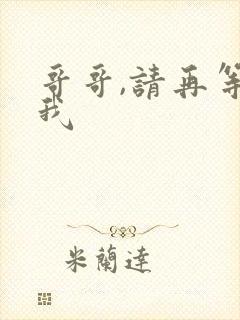 哥哥,請再等
我
米蘭達